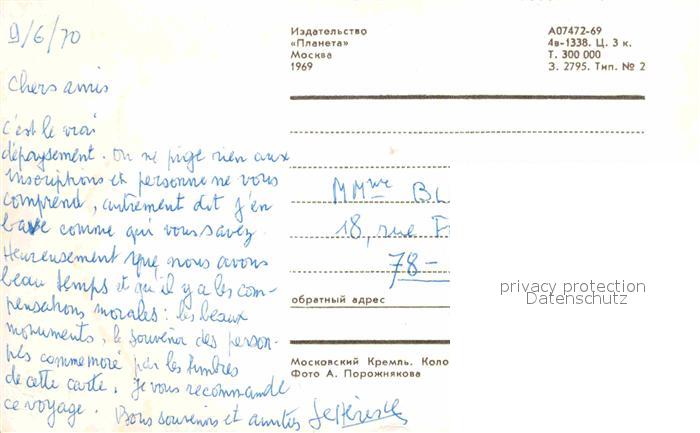 9/6/70
Chers amis
C'est le vrai
dépaysement. On ne pige rien aux
inscriptions et personne ne vous
comprend, autrement dit j'en
bave comme qui vous savez.
Heureusement que nous avons
beau temps et qu'il y a les com-
pensations morales : les beaux
monuments, le souvenir des person-
nes commémoré par les timbres
de cette carte. Je vous recommande
ce voyage. Bons souvenirs et amitiés
Издательство
«Планета»
Москва
1969
А07472-69
4в-1338. Ц. 3 к.
Т. 300 000
З. 2795. Тип. № 2
MMme BL
18, rue F
78-
обратный адрес
Московский Кремль. Коло
Фото А. Порожнякова
privacy protection
Datenschutz